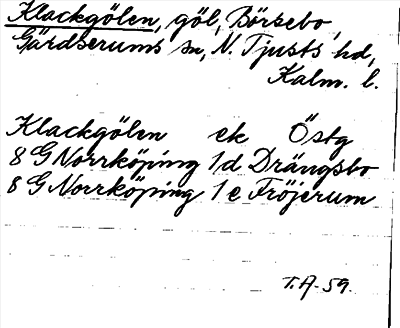 Klackgölen, göl, Börsebo,
Gärdserums sn, N. Tjusts hd,
Kalm. l.
Klackgölen ek Östg
8 G Norrköping 1d Drängsbo
8 G Norrköping 1e Fröjerum
T.A-59.